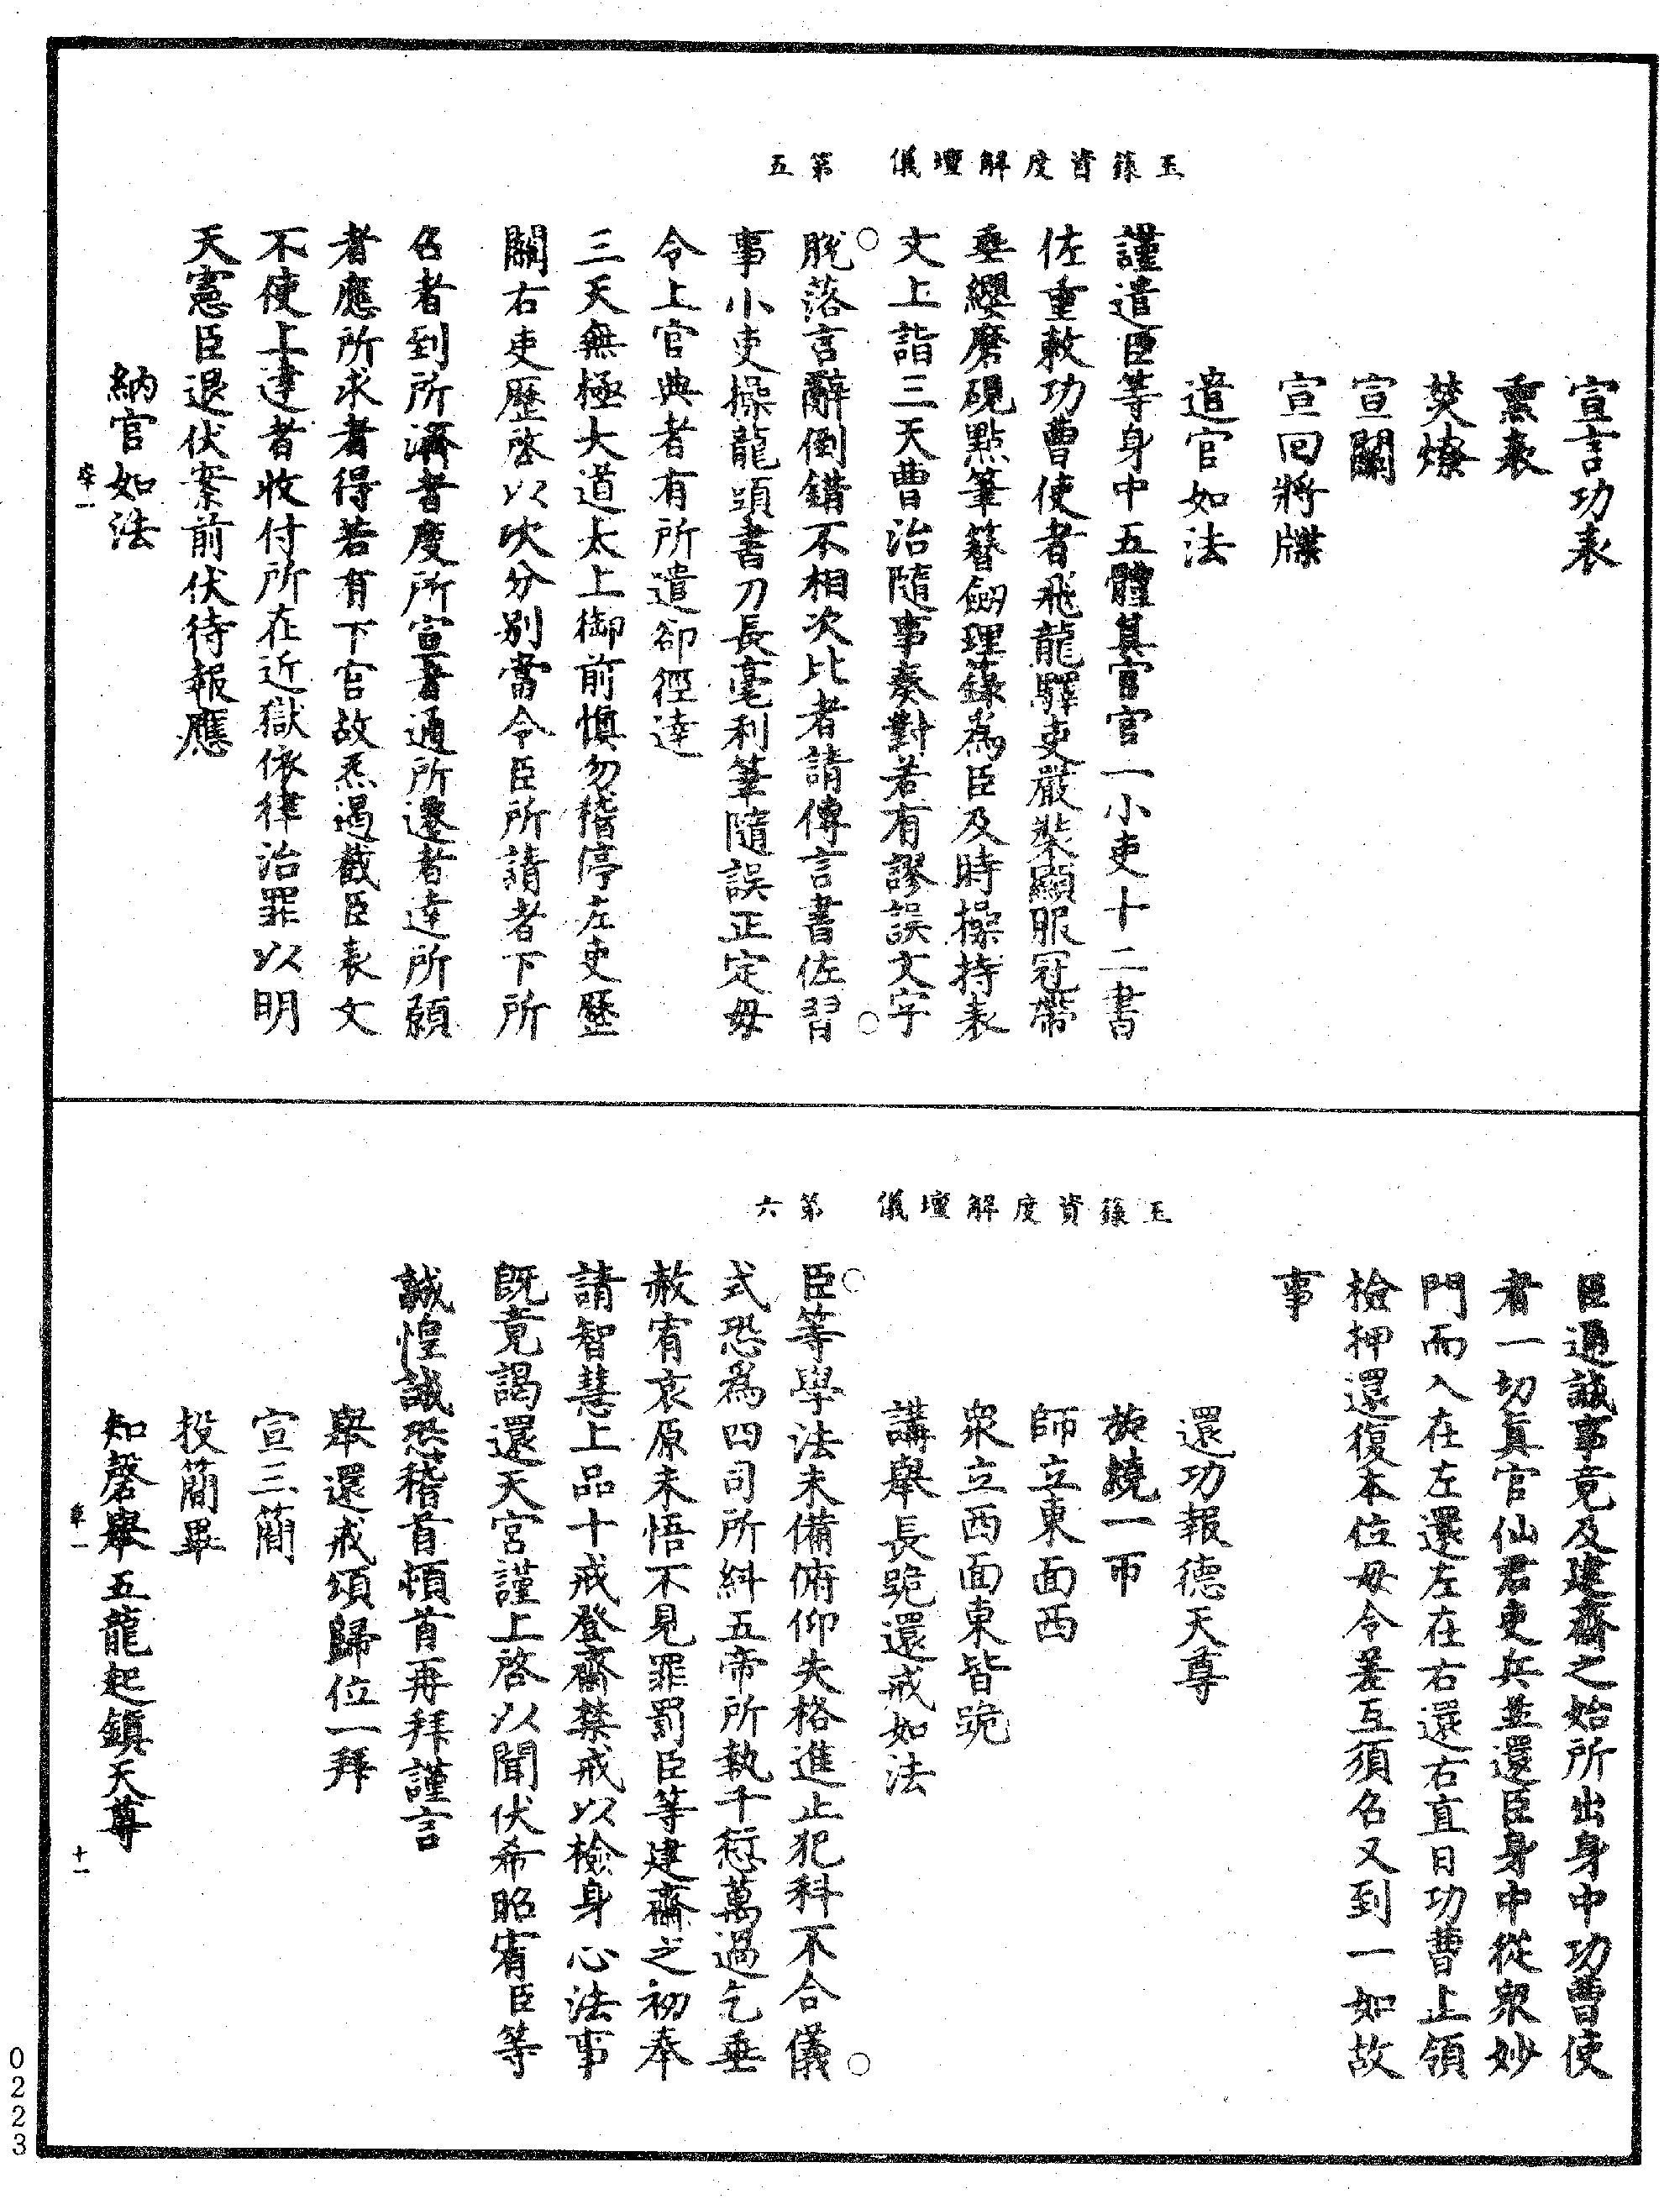 玉籙資度解壇儀　第五
宣言功表
熏表
焚燎
宣關
宣回將牒
遣官如法
謹遣臣等身中五體真官官一小吏十二書
佐重敕功曹使者飛龍驛吏嚴裝顯服冠帶
垂纓磨硯點筆簪劒理籙爲臣及時操持表
文上詣三天曹治隨事奏對若有謬誤文字
脫落言辭倒錯不相次比者請傳言書佐習
事小吏操龍頭書刀長毫利筆隨誤正定毋
令上官典者有所遣卻徑達
三天無極大道太上御前愼勿稽停左吏歷
關右吏歷啓以次分別當令臣所請者下所
召者到所濟者度所宣者通所遷者達所願
者應所求者得若有下官故炁遏截臣表文
不使上達者收付所在近獄依律治罪以明
天憲臣退伏案前伏待報應
納官如法
臣通誠事竟及建齋之始所出身中功曹使
者一切眞官仙君吏兵並還臣身中從衆妙
門而入在左還左在右還右直日功曹止領
檢押還復本位毋令差互須召又到一如故
事
還功報德天尊
旋繞一帀
師立東面西
衆立西面東皆跪
講舉長跪還戒如法
玉籙資度解壇儀　第六
臣等學法未備俯仰失格進止犯科不合儀
式恐爲四司所糾五帝所執千愆萬過乞垂
赦宥哀原未悟不見罪罰臣等建齋之初奉
請智慧上品十戒登齋禁戒以檢身心法事
旣竟謁還天宮謹上啓以聞伏希昭宥臣等
誠惶誠恐稽首頓首再拜謹言
舉還戒頌歸位一拜
宣三簡
投簡畢
知磬舉五龍起鎭天尊
十一
0223